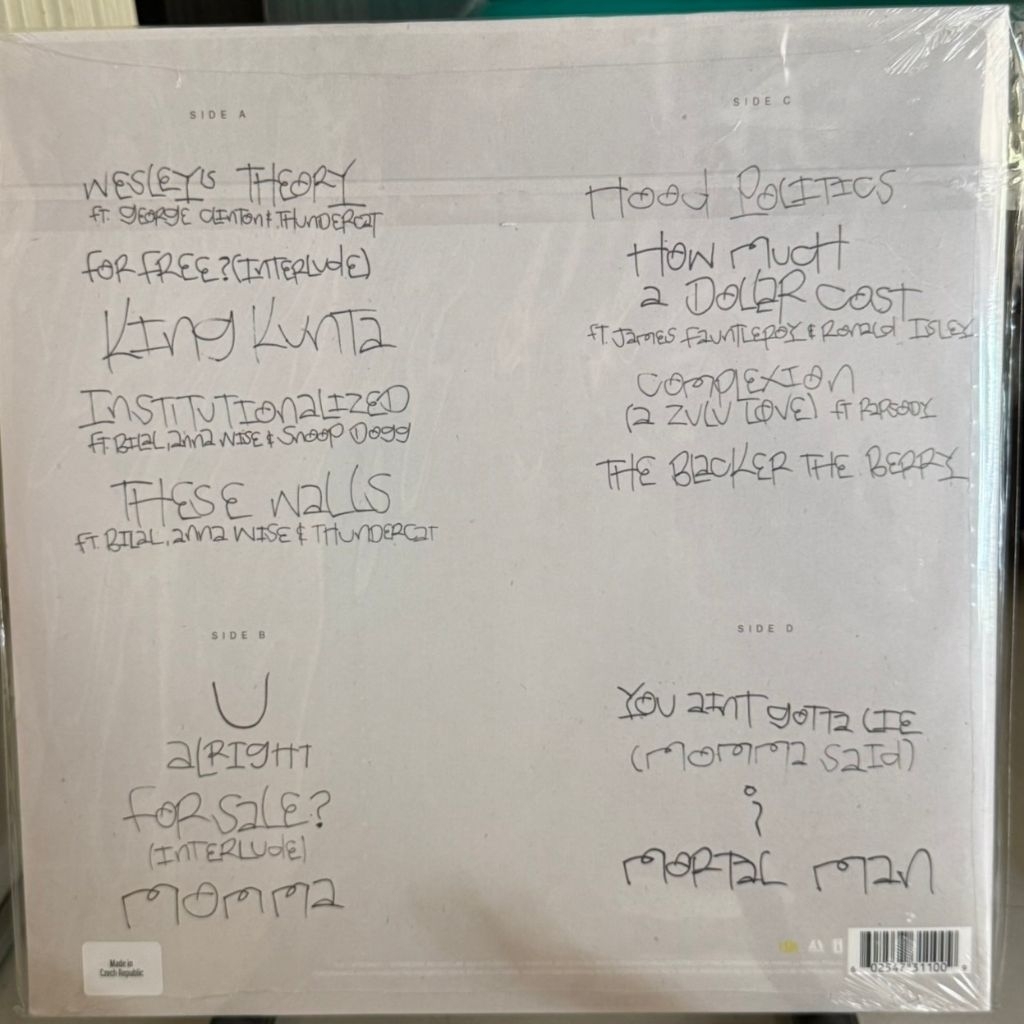 SIDE A
WESLEY'S THEORY
ft. GEORGE CLINTON & THUNDERCAT
FOR FREE? (INTERLUDE)
KING KUNTA
INSTITUTIONALIZED
ft. BILAL, ANNA WISE & SNOOP DOGG
THESE WALLS
ft. BILAL, ANNA WISE & THUNDERCAT
SIDE B
U
ALRIGHT
FOR SALE?
(INTERLUDE)
MOMMA
SIDE C
HOOD POLITICS
HOW MUCH
A DOLLAR COST
ft. JAMES FAUNTLEROY & RONALD ISLEY
COMPLEXION
(A ZULU LOVE) ft RAPSODY
THE BLACKER THE BERRY
SIDE D
YOU AINT GOTTA LIE
(MOMMA SAID)
i
MORTAL MAN
Made in
Czech Republic
02547 31100